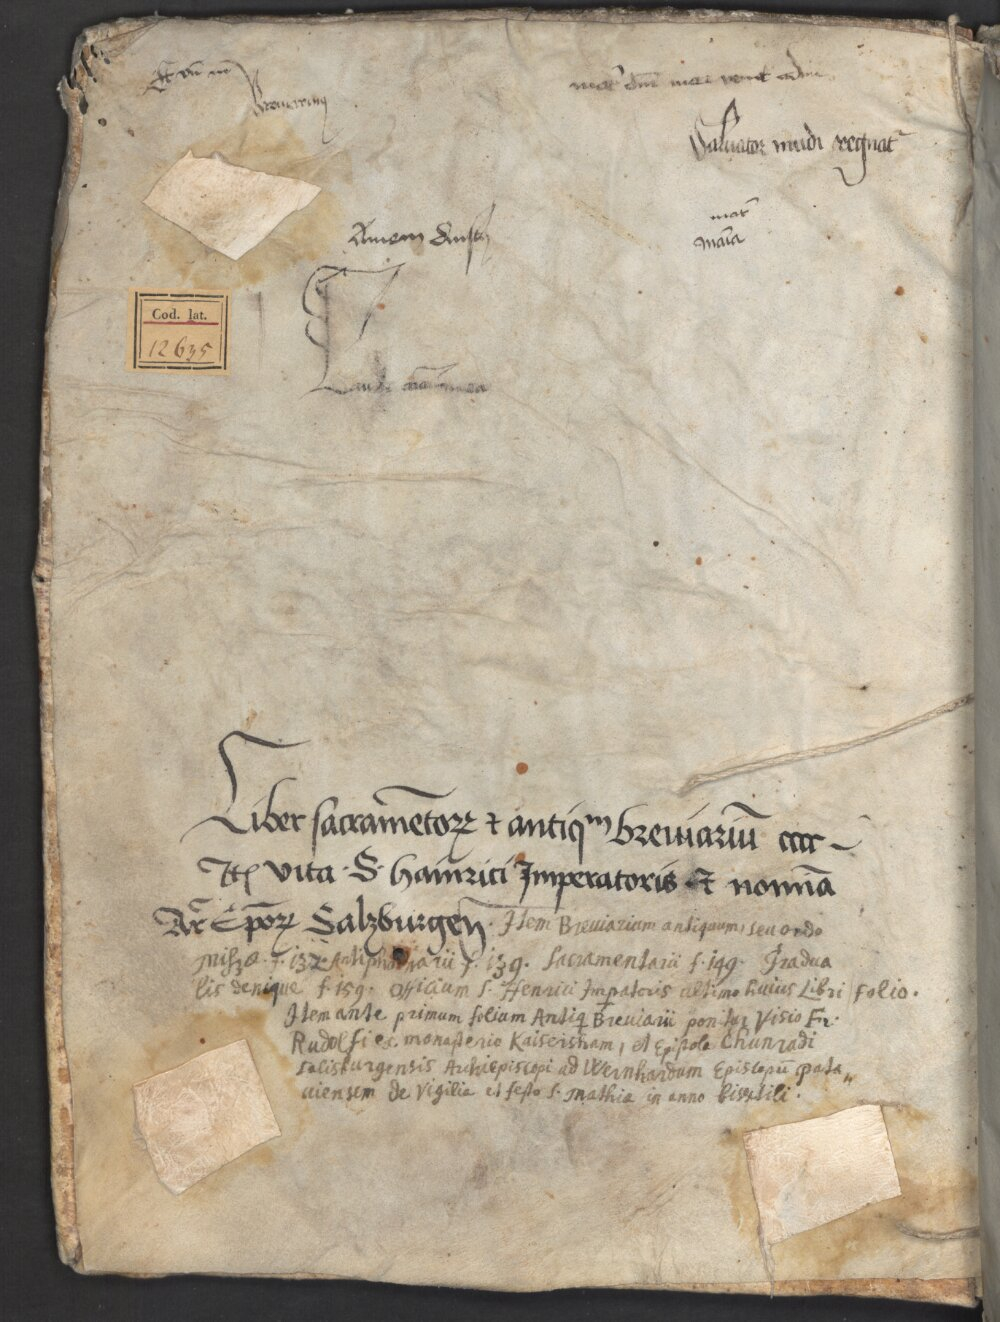 Breuiarium
Saluator mūdi regnat
mat
Maria
Amen
Cod. lat.
12635
Lauda aīa mea
Liber sacramētoꝝ ⁊ antiqᵐ breuiariū cccc
Itē vita S. hainrici Imperatoris Et nomīa
Ar Ep̄oꝝ Salzburgen̄. Item Breuiarium antiquum, seu ordo
missæ f. 132. Antiphonarii f. 139. Sacramentarii f. 149. Gradua
lis denique f. 159. Officium S. Henrici Imperatoris ultimo huius Libri folio.
Item ante primum folium Antiq̨ Breuiarii ponitur Visio Fr.
Rudolfi ec. monasterio Kaisersham, et Epistola Chunradi
Salisburgensis Archiepiscopi ad Wernhardum Episcopū pata„
uiensem de Vigilia et festo S. Mathiæ in anno bissextili.